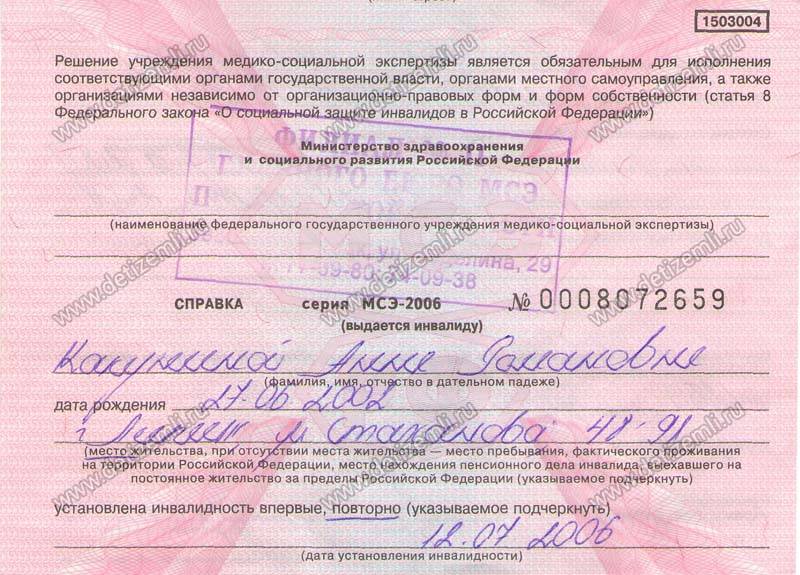 1503004
Решение учреждения медико-социальной экспертизы является обязательным для исполнения
соответствующими органами государственной власти, органами местного самоуправления, а также
организациями независимо от организационно-правовых форм и форм собственности (статья 8
Федерального закона «О социальной защите инвалидов в Российской Федерации»)
Министерство здравоохранения
и социального развития Российской Федерации
ФИЛИАЛ
БЮРО МСЭ
29
09-38
(наименование федерального государственного учреждения медико-социальной экспертизы)
СПРАВКА серия МСЭ-2006 № 0008072659
(выдается инвалиду)
Анне Романовне
(фамилия, имя, отчество в дательном падеже)
дата рождения 27.06 2002
г Липецк ул Стаханова 48-91
(место жительства, при отсутствии места жительства — место пребывания, фактического проживания
на территории Российской Федерации, место нахождения пенсионного дела инвалида, выехавшего на
постоянное жительство за пределы Российской Федерации (указываемое подчеркнуть)
установлена инвалидность впервые, повторно (указываемое подчеркнуть)
12.07 2006
(дата установления инвалидности)
www.detizemli.ru